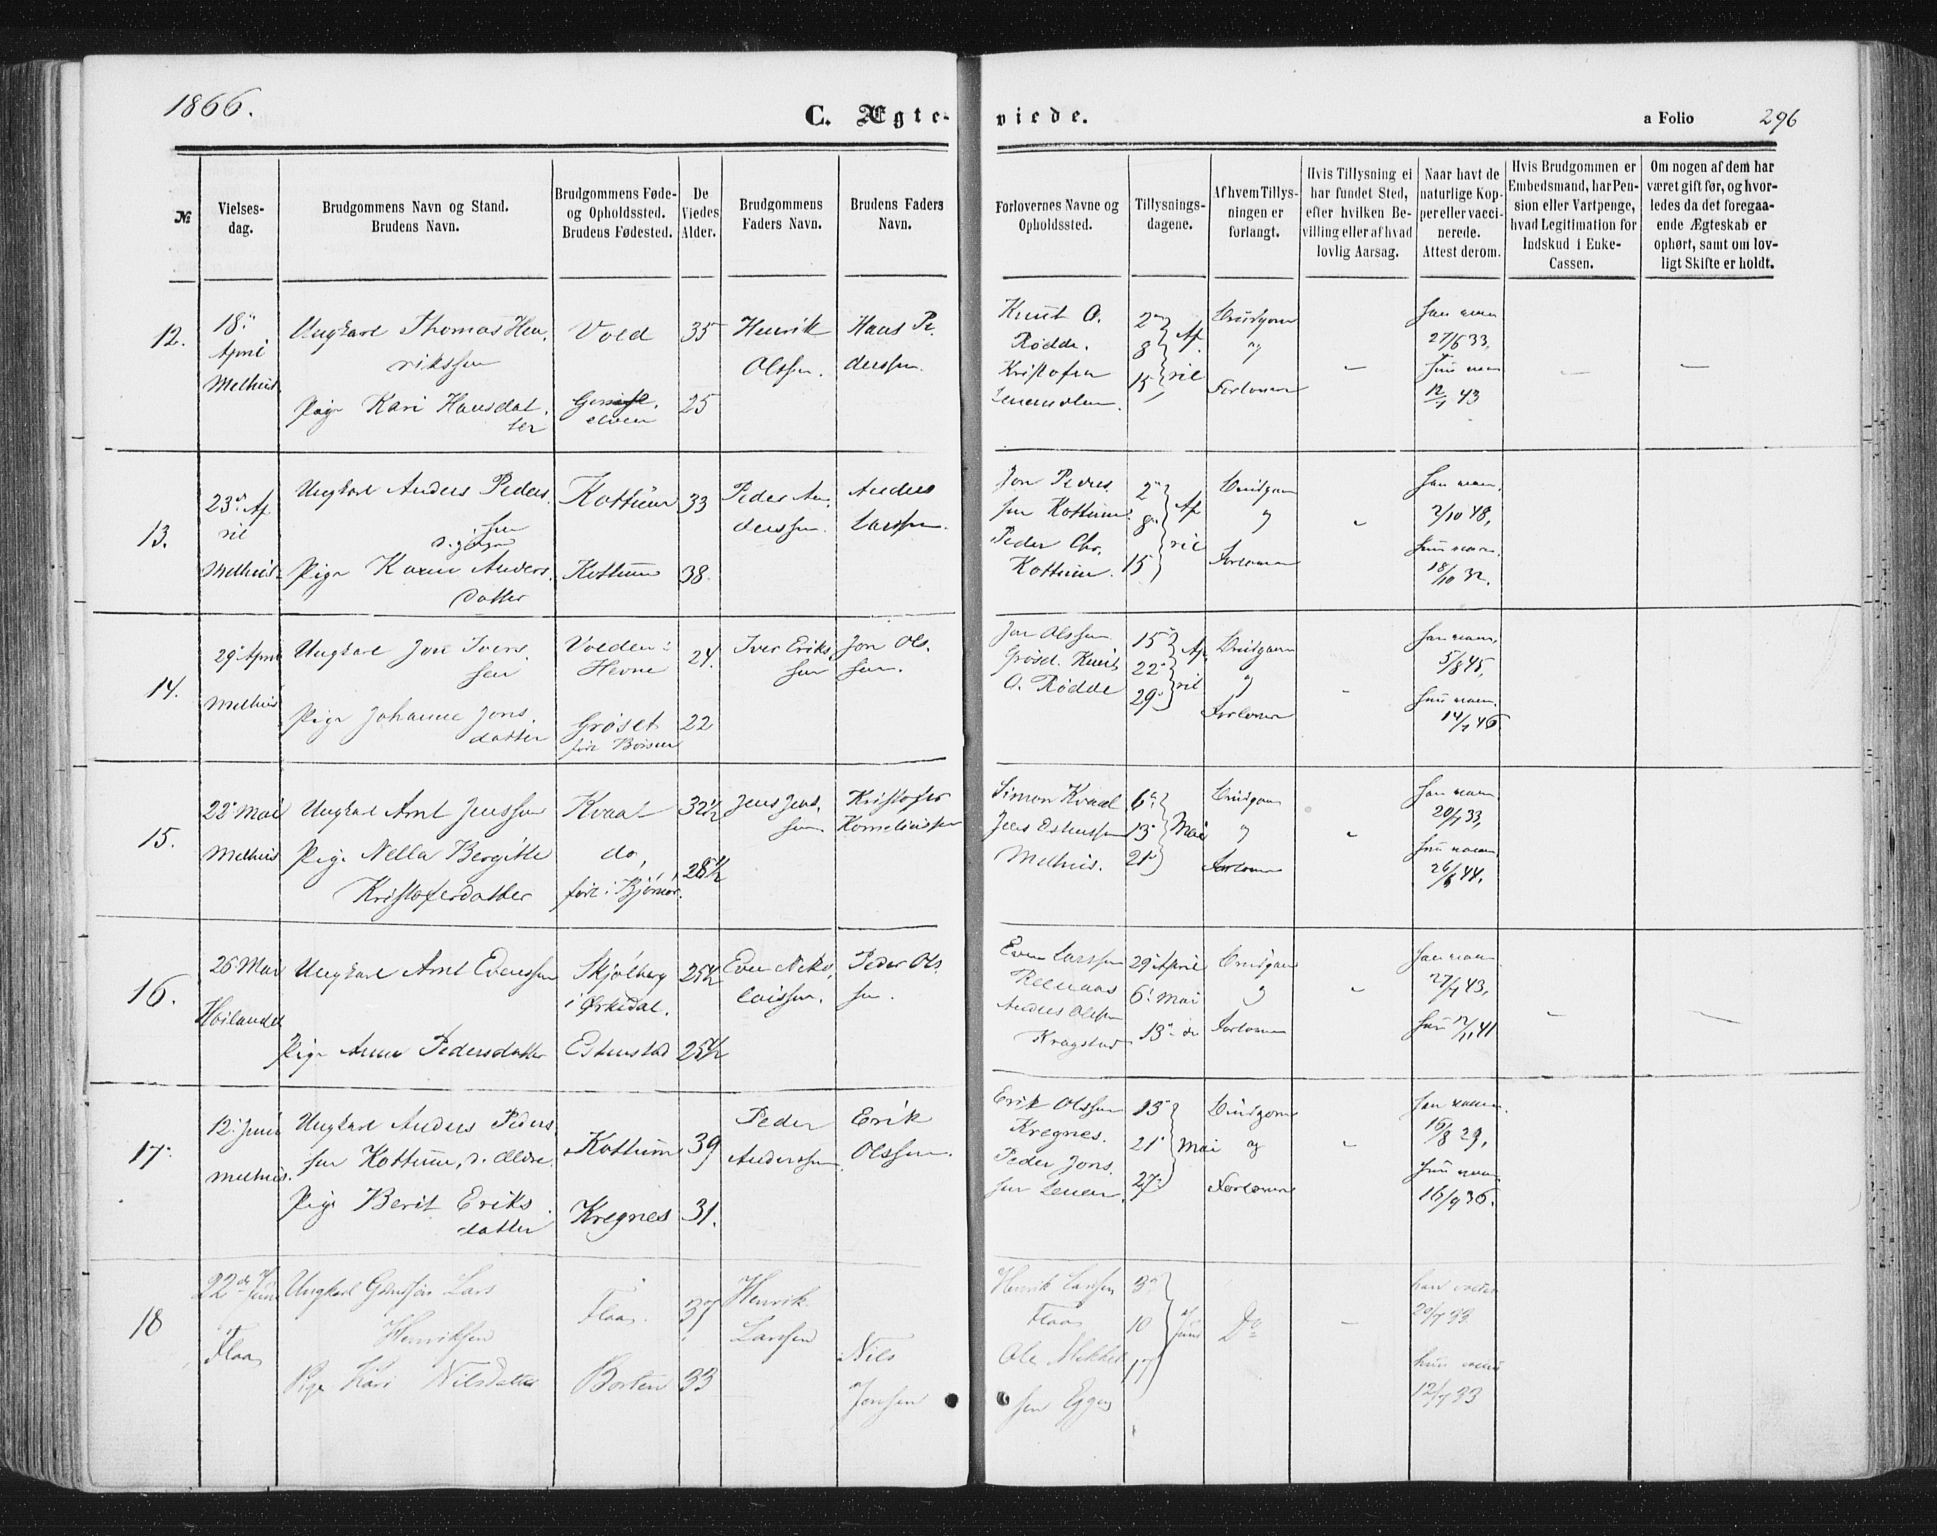 1866.
C. Ægte-
viede.
a Folio
296
№
Vielses-
dag.
Brudgommens Navn og Stand.
Brudens Navn.
Brudgommens Føde-
og Opholdssted.
Brudens Fødested.
De
Viedes
Alder.
Brudgommens
Faders Navn.
Brudens Faders
Navn.
Forlovernes Navne og
Opholdssted.
Tillysnings-
dagene.
Af hvem Tillys-
ningen er
forlangt.
Hvis Tillysning ei
har fundet Sted,
efter hvilken Be-
villing eller af hvad
lovlig Aarsag.
Naar havt de
naturlige Kop-
per eller vacci-
nerede.
Attest derom.
Hvis Brudgommen er
Embedsmand, har Pen-
sion eller Vartpenge,
hvad Legitimation for
Indskud i Enke-
Cassen.
Om nogen af dem har
været gift før, og hvor-
ledes da det foregaa-
ende Ægteskab er
ophørt, samt om lov-
ligt Skifte er holdt.
12.
18.
April
Melhus
Ungkarl Thomas Hen
rikssen
Pige Kari Hansdat
ter
Vold
elven
35
25
Henrik
Olssen.
Hans Pe
derssen.
Knut O.
Rødde.
Kristofer
2
8
15
Ap
ril
Brudgom
og
Forlover
27/6 33,
12/1 43
13.
23 Ap
ril
Melhus
Ungkarl Anders Peders
sen
d. yngre
Pige Karen Anders
datter
Kottum
Kottum
33
38.
Peder An
derssen.
Anders
Larssen.
Jon Peders
sen Kottum
Peder Chr.
Kottum.
2
8
15
Ap
ril
Brudgom
og
Forlover
2/10 48,
18/10 32.
14.
29 April
Melhus
Ungkarl Jon Ivers
sen
Pige Johanne Jons
datter
Volden i
Hevne
Grøset
født Børsen
24.
22
Iver Eriks
sen
Jon Ols
sen.
Jon Olssen
Grøset. Knut
O. Rødde
15
22
29
Ap
ril
Brudgom
og
Forlover
5/8 45,
14/7 46
15.
22 Mai
Melhus
Ungkarl Arnt Jenssen
Pige Nella Bergitte
Kristofersdatter
Kvaal
do,
født i Bjørnør.
32½
28½
Jens Jens
sen
Kristofer
Kornelinssen
Simon Kvaal
Jens Estenssen
Melhus.
6
13
21
Mai
Brudgom
og
Forlover
20/7 33,
26/6 44.
16.
26 Mai
Høilandet
Ungkarl Arnt Evenssen
Pige Anne Pedersdatter
Skjølberg
i Ørkedal.
Estenstad
25½
25½
Even Niko
laissen.
Peder Ols
sen.
Even Larssen
Reenaas
Anders Olssen
Kragstad
29 April
6 Mai
13 do
Brudgom
og
Forlover
27/7 43,
12/11 41
17.
12 Juni
Melhus.
Ungkarl Anders Peders
sen Kottum, d. ældre
Pige Berit Eriks
datter
Kottum
Kregnes
39
31.
Peder
Anderssen
Erik
Olssen.
Erik Olssen
Kregnes.
Peder Jons
sen Lenen.
13
21
27
Mai
Brudgom
og
Forlover
16/8 29,
16/9 36.
18
22 de Juni
Flaa
Ungkarl Lars
Henriksen
Pige Kari Nilsdatter
Flaa.
Borten
37
33
Henrik
Larssen
Nils
Jonssen
Henrik Larssen
Flaa
Ole Mikkel
sen Eggen
3
10
17
Juni
Do
20/7 33
12/7 33